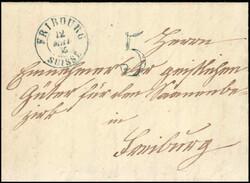 FRIBOURG
12
MAI
SUISSE
5
Herrn
Einnehmer der geistlichen
Güter für den Sannenbe-
zirk
in
Freiburg